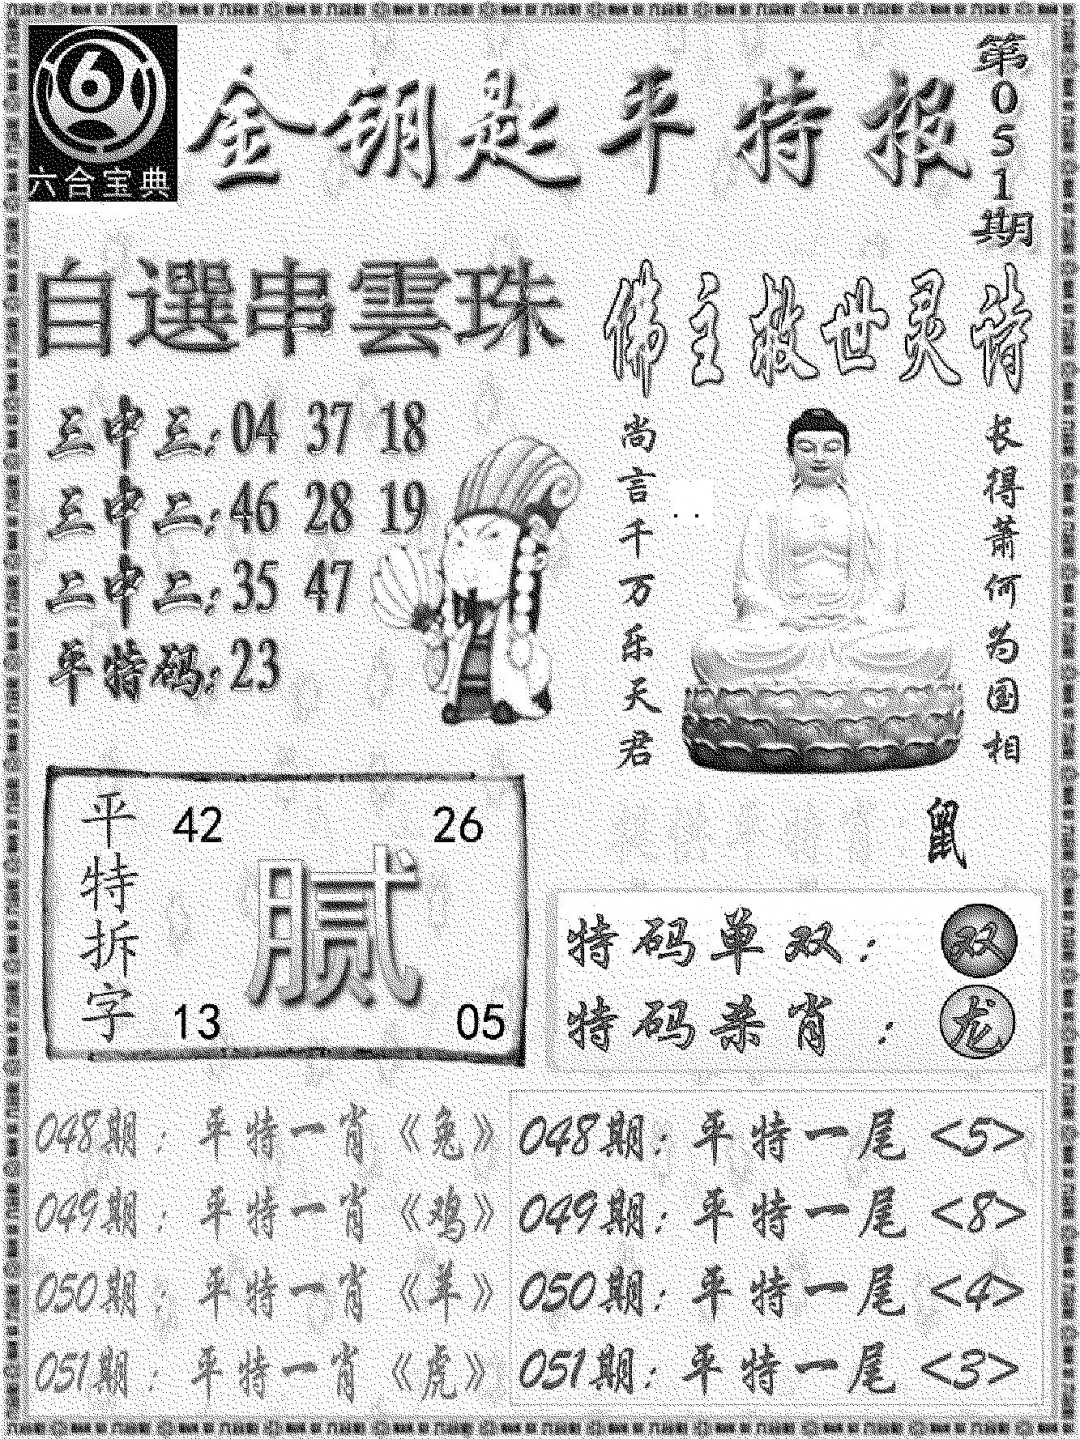 六合宝典
金钥匙平特报
第051期
自選串雲珠
三中三:04 37 18
三中二:46 28 19
二中二:35 47
平特码:23
佛主救世灵诗
尚言千万乐天君
长得萧何为国相
鼠
平特拆字
42 26
腻
13 05
特码单双: 双
特码杀肖: 龙
048期:平特一肖《兔》
049期:平特一肖《鸡》
050期:平特一肖《羊》
051期:平特一肖《虎》
048期:平特一尾<5>
049期:平特一尾<8>
050期:平特一尾<4>
051期:平特一尾<3>